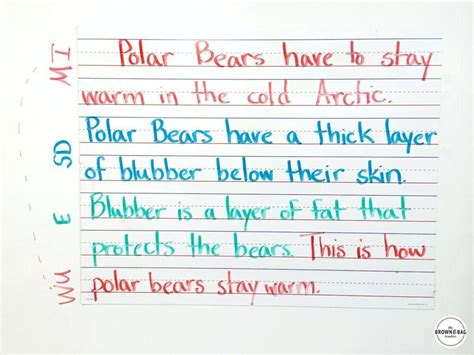 MI
Polar Bears have to stay
warm in the cold Arctic.
SD
Polar Bears have a thick layer
of blubber below their skin.
E
Blubber is a layer of fat that
protects the bears. This is how
WU
polar bears stay warm.
BROWN BAG